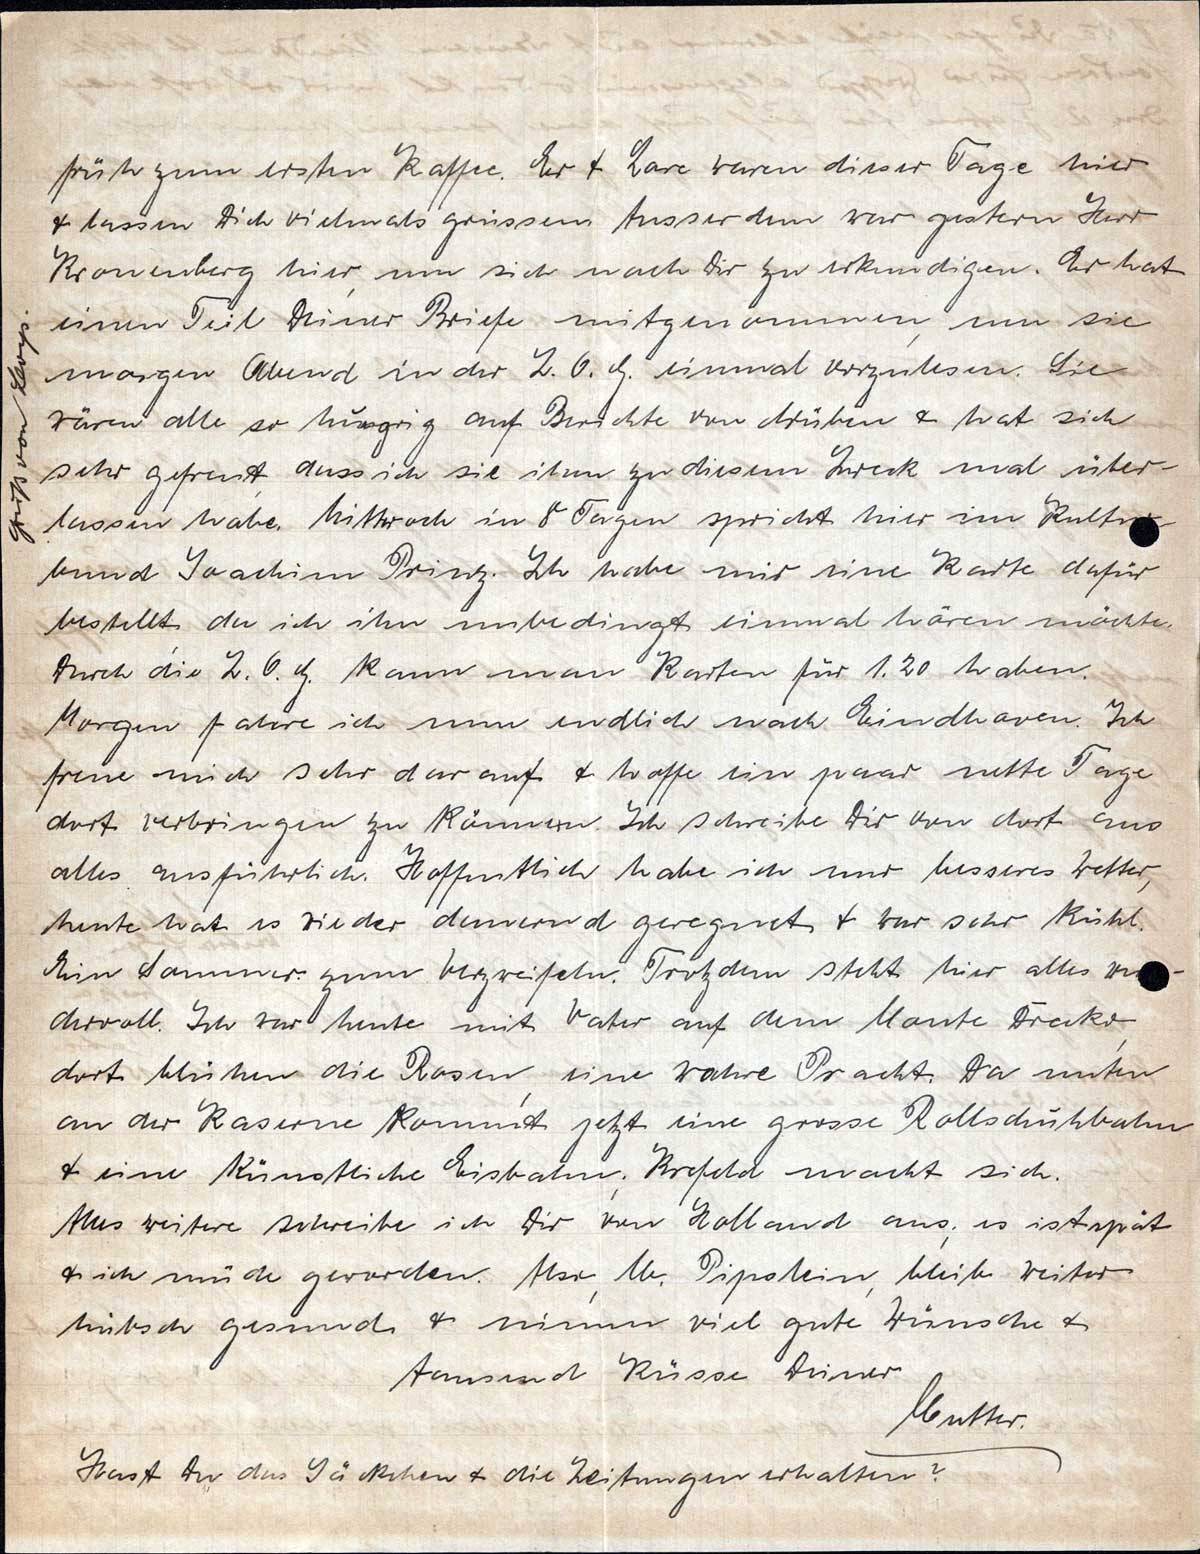 früh zum ersten Kaffee. Er & Lore waren dieser Tage hier
& lassen Dich vielmals grüssen. Ausserdem war gestern Herr
Kronenberg hier, um sich nach Dir zu erkundigen. Er hat
einen Teil Deiner Briefe mitgenommen, um sie
morgen Abend in der Z.O.G. einmal vorzulesen. Sie
wären alle so hungrig auf Berichte von drüben & hat sich
sehr gefreut, dass ich sie ihm zu diesem Zweck mal über-
lassen habe. Mittwoch in 8 Tagen spricht hier im Kultur
bund Joachim Prinz. Ich habe mir eine Karte dafür
bestellt, da ich ihn unbedingt einmal hören möchte.
Durch die Z.O.G. kann man Karten für 1.20 haben.
Morgen fahre ich nun endlich nach Eindhoven. Ich
freue mich sehr darauf & hoffe ein paar nette Tage
dort verbringen zu können. Ich schreibe Dir von dort aus
alles ausführlich. Hoffentlich habe ich nur besseres Wetter,
heute hat es wieder dauernd geregnet & war sehr kühl.
Ein Sommer zum Verzweifeln. Trotzdem steht hier alles wun-
dervoll. Ich war heute mit Vater auf dem Monte Drecko,
dort blühen die Rosen, eine wahre Pracht. Da unten
an der Kaserne kommt jetzt eine grosse Rollschuhbahn
& eine künstliche Eisbahn, Krefeld macht sich.
Alles weitere schreibe ich Dir von Holland aus, es ist spät
& ich müde geworden. Also, m. Pipslein, bleib weiter
hübsch gesund & nimm viel gute Wünsche &
tausend Küsse Deiner
Mutter.
Hast Du das Jäckchen & die Zeitungen erhalten?
Gruß von